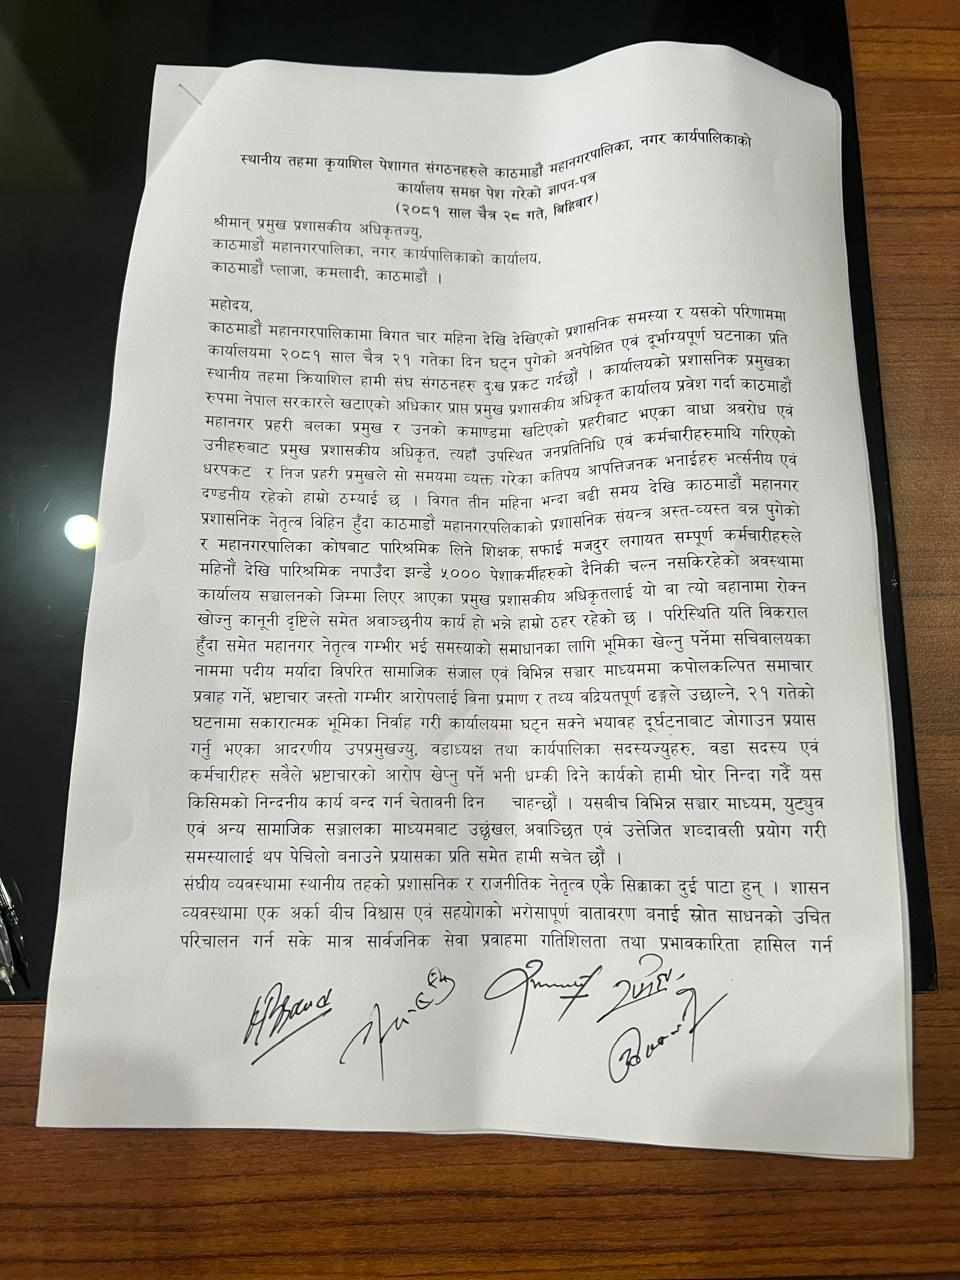 स्थानीय तहमा कृयाशिल पेशागत संगठनहरुले काठमाडौं महानगरपालिका, नगर कार्यपालिकाको
कार्यालय समक्ष पेश गरेको ज्ञापन-पत्र
(२०८१ साल चैत्र २८ गते, बिहिबार)
श्रीमान् प्रमुख प्रशासकीय अधिकृतज्यु,
काठमाडौं महानगरपालिका, नगर कार्यपालिकाको कार्यालय,
काठमाडौं प्लाजा, कमलादी, काठमाडौं ।
महोदय,
काठमाडौं महानगरपालिकामा विगत चार महिना देखि देखिएको प्रशासनिक समस्या र यसको परिणाममा
कार्यालयमा २०८१ साल चैत्र २१ गतेका दिन घट्न पुगेको अनपेक्षित एवं दूर्भाग्यपूर्ण घटनाका प्रति
स्थानीय तहमा क्रियाशिल हामी संघ संगठनहरु दुःख प्रकट गर्दछौं । कार्यालयको प्रशासनिक प्रमुखका
रुपमा नेपाल सरकारले खटाएको अधिकार प्राप्त प्रमुख प्रशासकीय अधिकृत कार्यालय प्रवेश गर्दा काठमाडौं
महानगर प्रहरी बलका प्रमुख र उनको कमाण्डमा खटिएको प्रहरीबाट भएका बाधा अवरोध एवं
उनीहरुबाट प्रमुख प्रशासकीय अधिकृत, त्यहाँ उपस्थित जनप्रतिनिधि एवं कर्मचारीहरुमाथि गरिएको
धरपकट र निज प्रहरी प्रमुखले सो समयमा व्यक्त गरेका कतिपय आपत्तिजनक भनाईहरु भर्त्सनीय एवं
दण्डनीय रहेको हाम्रो ठम्याई छ । विगत तीन महिना भन्दा बढी समय देखि काठमाडौं महानगर
प्रशासनिक नेतृत्व विहिन हुँदा काठमाडौं महानगरपलिकाको प्रशासनिक संयन्त्र अस्त-व्यस्त बन्न पुगेको
र महानगरपालिका कोषबाट पारिश्रमिक लिने शिक्षक, सफाई मजदुर लगायत सम्पूर्ण कर्मचारीहरुले
महिनौं देखि पारिश्रमिक नपाउँदा झन्डै ५००० पेशाकर्मीहरुको दैनिकी चल्न नसकिरहेको अवस्थामा
कार्यालय सञ्चालनको जिम्मा लिएर आएका प्रमुख प्रशासकीय अधिकृतलाई यो वा त्यो बहानामा रोक्न
खोज्नु कानूनी दृष्टिले समेत अवाञ्छनीय कार्य हो भन्ने हाम्रो ठहर रहेको छ । परिस्थिति यति विकराल
हुँदा समेत महानगर नेतृत्व गम्भीर भई समस्याको समाधानका लागि भूमिका खेल्नु पर्नेमा सचिवालयका
नाममा पदीय मर्यादा विपरित सामाजिक संजाल एवं विभिन्न सञ्चार माध्यममा कपोलकल्पित समाचार
प्रवाह गर्ने, भ्रष्टाचार जस्तो गम्भीर आरोपलाई विना प्रमाण र तथ्य वद्रियतपूर्ण ढङ्गले उछाल्ने, २१ गतेको
घटनामा सकारात्मक भूमिका निर्वाह गरी कार्यालयमा घट्न सक्ने भयावह दूर्घटनाबाट जोगाउन प्रयास
गर्नु भएका आदरणीय उपप्रमुखज्यु, वडाध्यक्ष तथा कार्यपालिका सदस्यज्युहरु, वडा सदस्य एवं
कर्मचारीहरु सबैले भ्रष्टाचारको आरोप खेप्नु पर्ने भनी धम्की दिने कार्यको हामी घोर निन्दा गर्दै यस
किसिमको निन्दनीय कार्य बन्द गर्न चेतावनी दिन चाहन्छौं । यसबीच विभिन्न सञ्चार माध्यम, युट्युव
एवं अन्य सामाजिक सञ्जालका माध्यमबाट उछृंखल, अवाञ्छित एवं उत्तेजित शव्दावली प्रयोग गरी
समस्यालाई थप पेचिलो बनाउने प्रयासका प्रति समेत हामी सचेत छौं ।
संघीय व्यवस्थामा स्थानीय तहको प्रशासनिक र राजनीतिक नेतृत्व एकै सिक्काका दुई पाटा हुन् । शासन
व्यवस्थामा एक अर्का बीच विश्वास एवं सहयोगको भरोसापूर्ण वातावरण बनाई स्रोत साधनको उचित
परिचालन गर्न सके मात्र सार्वजनिक सेवा प्रवाहमा गतिशिलता तथा प्रभावकारिता हासिल गर्न